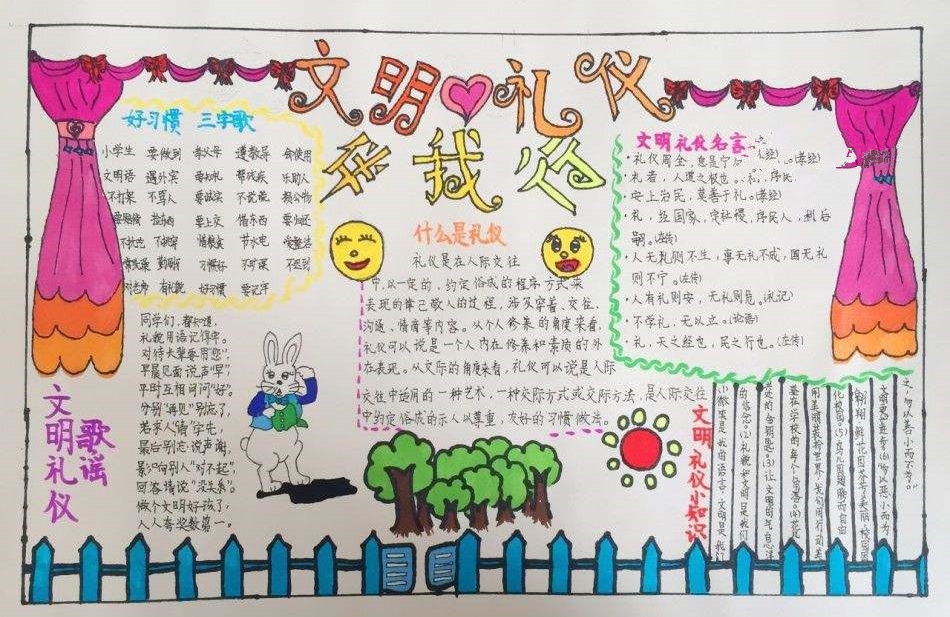 文明礼仪
手我行
好习惯 三字歌
小学生 要做到 孝父母 遵教导 会使用
文明语 遇外宾 要如礼 帮残疾 乐助人
不打架 不骂人 要诚实 不说谎 损公物
要赔偿 捡东西 要上交 借东西 要归还
惜粮食 节水电
习惯好 不旷课 不迟到
有礼貌 好习惯 要记牢
同学们,都知道,
礼貌用语记得牢。
对待来辈要用"您",
早晨见面说声"早",
平时互相问问"好"。
分别"再见"别忘了,
若求人"请"字先,
最后别忘说声谢,
影响别人"对不起",
回答请说"没关系"。
做个文明好孩子,
人人夸奖数第一。
文明礼仪
歌谣
什么是礼仪
礼仪是在人际交往
中,以一定的,约定俗成的程序方式来
表现的律己敬人的过程,涉及穿着、交往、
沟通、情商等内容。从个人修养的角度来看,
礼仪可以说是一个人内在修养和素质的外
在表现。从交际的角度来看,礼仪可以说是人际
交往中适用的一种艺术,一种交际方式或交际方法,是人际交往
中约定俗成的示人以尊重,友好的习惯做法。
文明礼仪名言
·礼仪周全,息是宁
·礼者,人道之极也。
·安上治民,莫善于礼。(孝经)
·礼,经国家,定社稷,序民人,利后
嗣。(左传)
·人无礼则不生,事无礼不成,国无礼
则不宁。(左传)
·人有礼则安,无礼则危。(礼记)
·不学礼,无以立。(论语)
·礼,天之经也,民之行也。(左传)
文明礼仪小知识
之,勿以善小而不为。"
文明更会进步(6)"勿以恶小而为
翱翔,鲜花因芬芳美丽,校园因
化校园。(5)鸟儿因翅膀而自由
用美丽装扮世界,先句用行动美
基在学校的每个角落。(4)花儿
进的金钥匙。(3)让文明的气息洋
的信念。(2)礼貌和文明是我们
小你来是我的语言,文明是我们